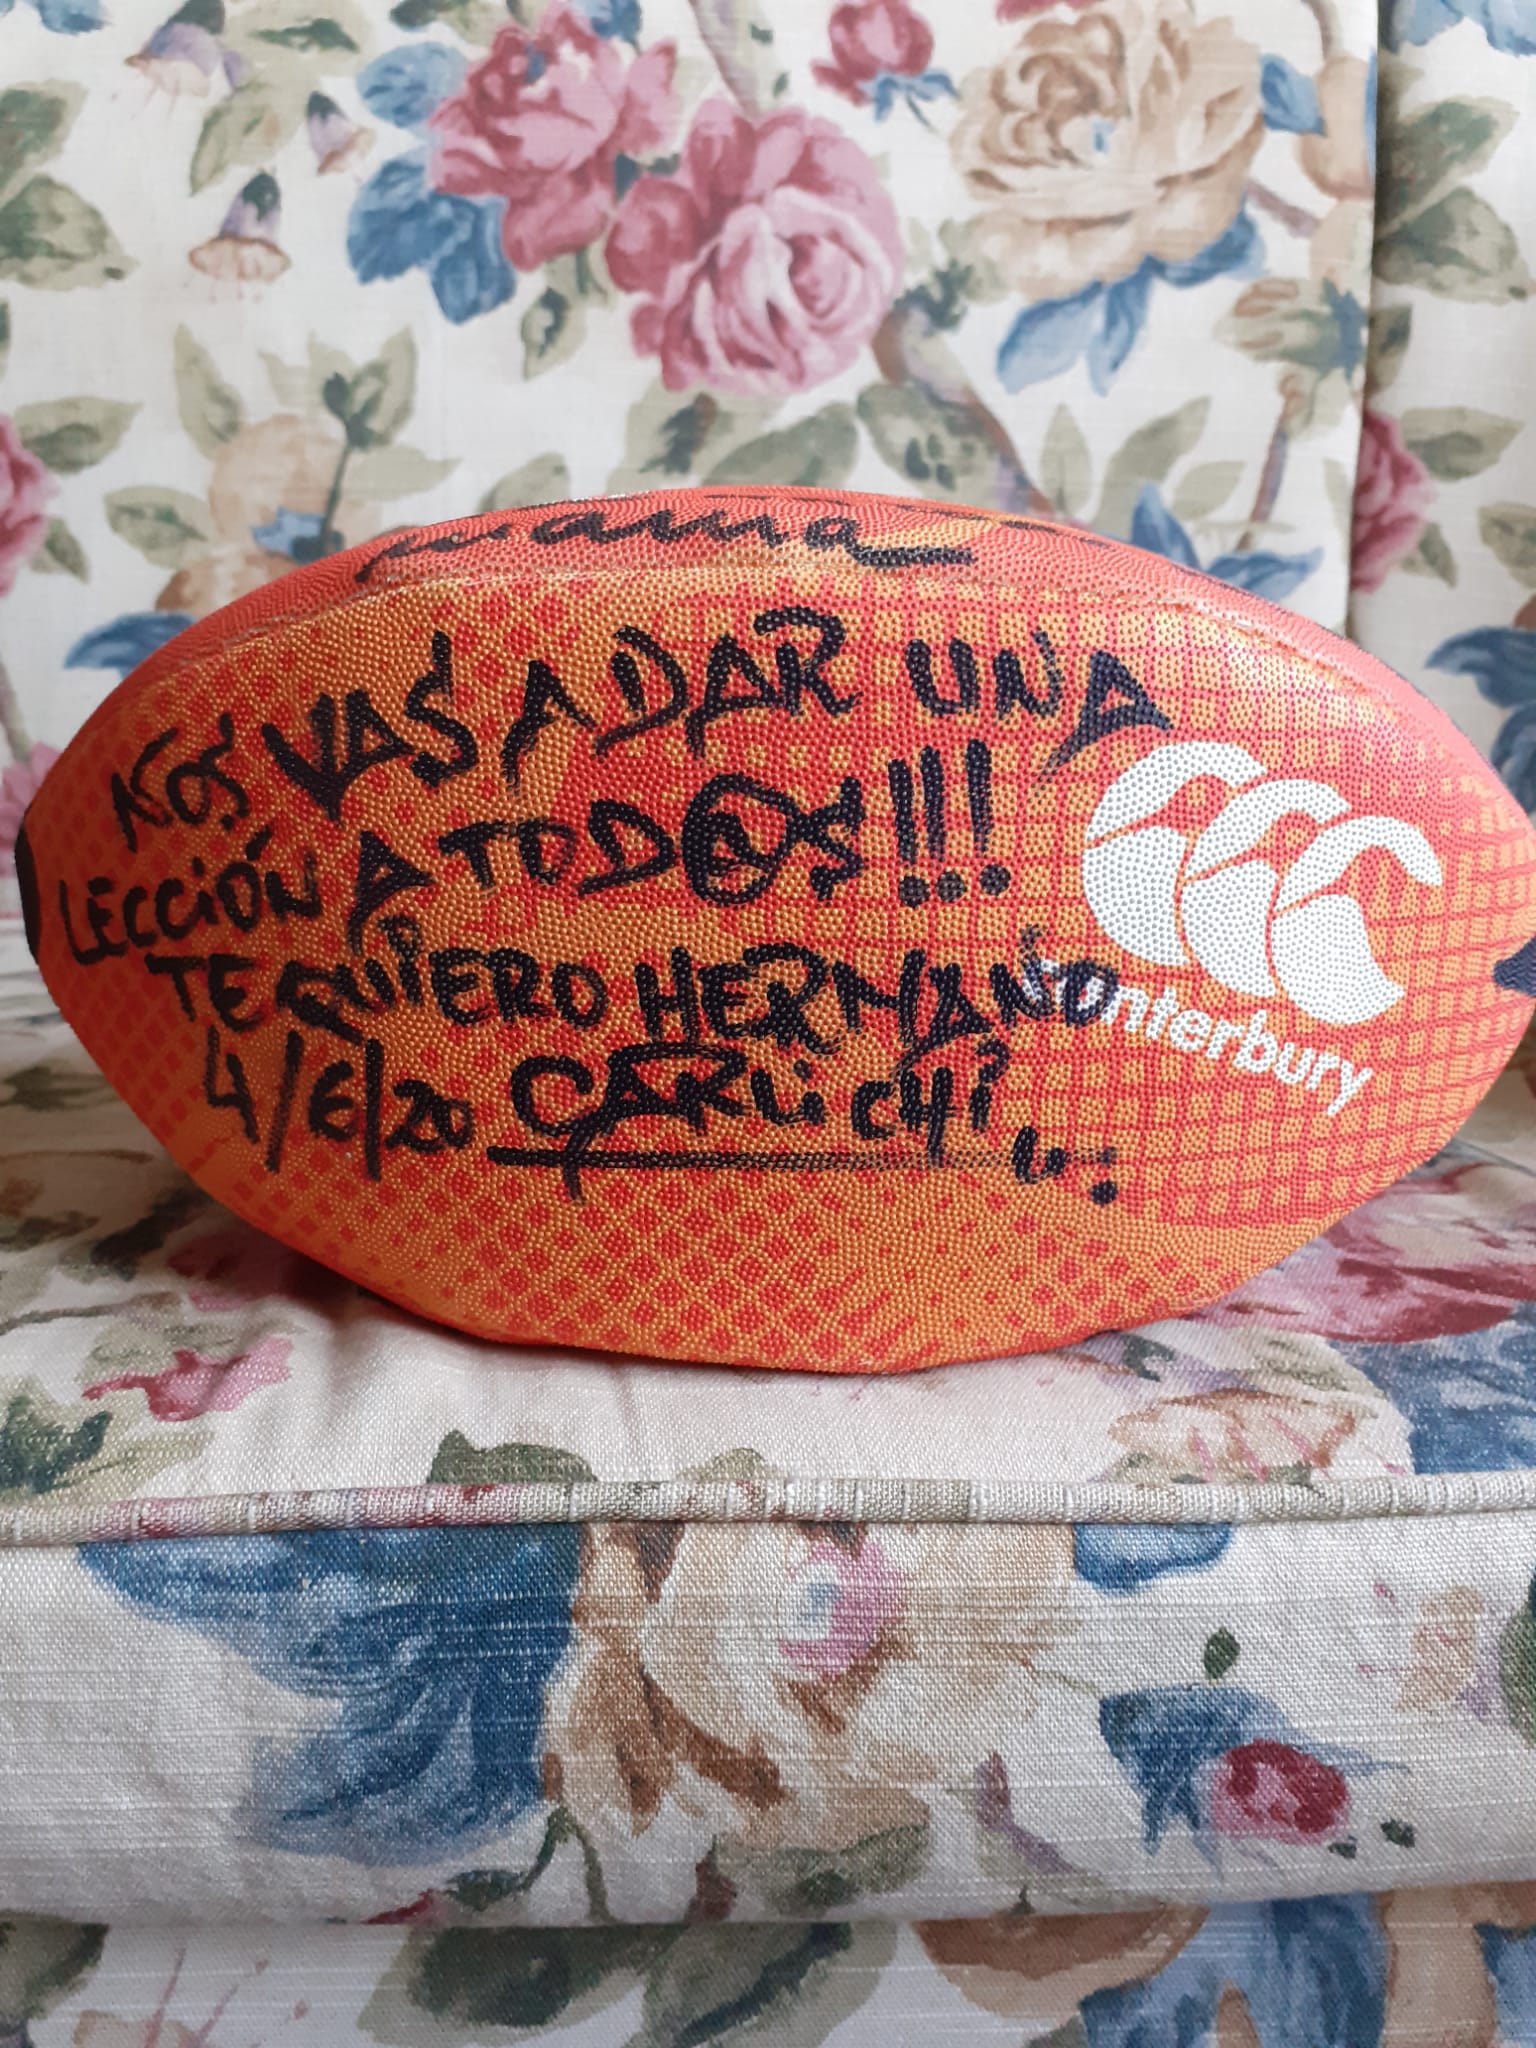 NOS VAS A DAR UNA
LECCIÓN A TODOS!!!
TE QUIERO HERMANO
4/6/20 CARLICHI
canterbury